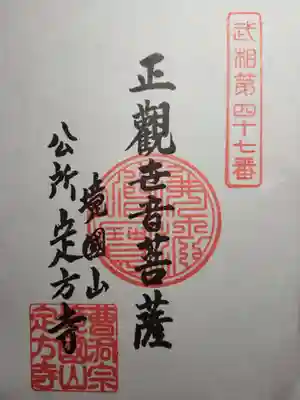 武相第四十七番
正觀世音菩薩
境國山
公所定方寺
曹洞宗
境國山
定方寺